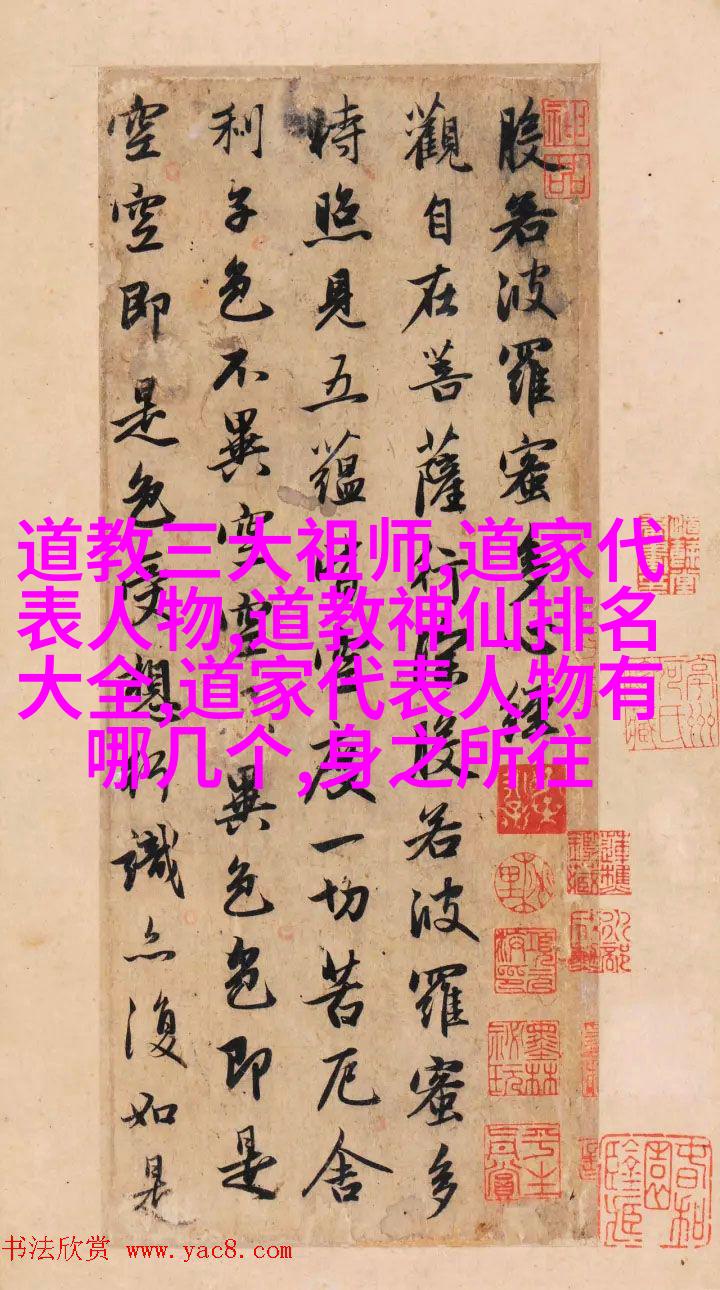 般若波羅蜜多心經
觀自在菩薩行深般若波羅蜜多
時照見五蘊皆空度一切苦厄舍
利子色不異空空不異色色即是
空空即是色受想行識亦復如是
道教三大祖师,道家代
表人物,道教神仙排名
大全,道家代表人物有
哪几个,身之所往
神品
墨林祕玩
书法欣赏 www.yac8.com